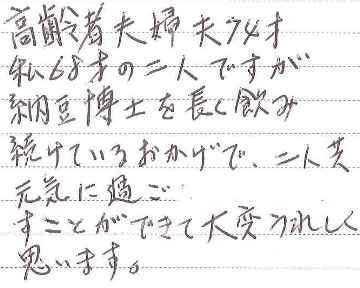 高齢者夫婦夫74才
私68才の二人ですが
納豆博士を長く飲み
続けているおかげで、二人共
元気に過ご
すことができて大変うれしく
思います。